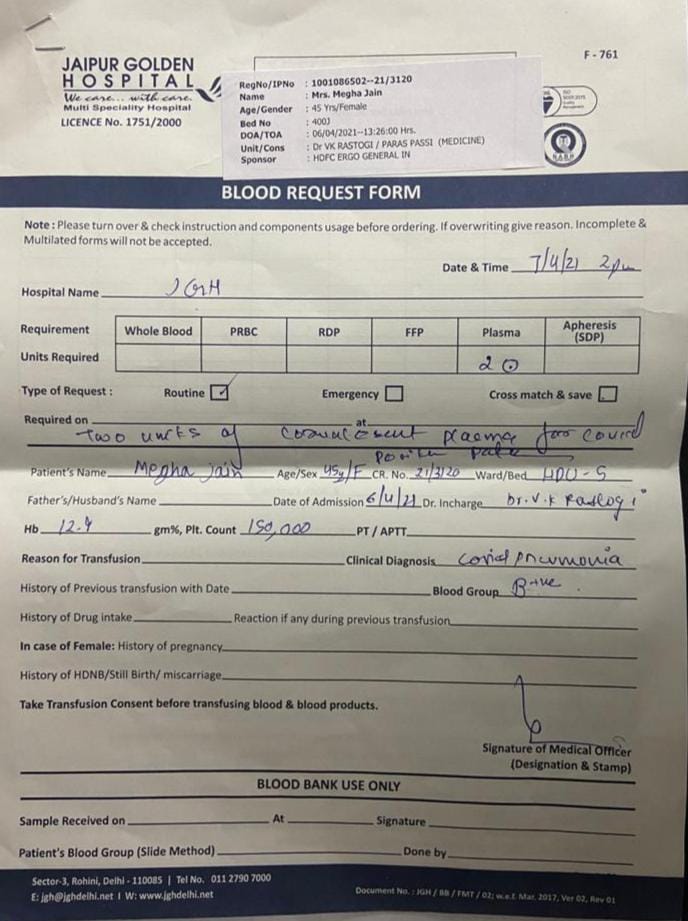 F - 761
JAIPUR GOLDEN
HOSPITAL
We care... with care.
Multi Speciality Hospital
LICENCE No. 1751/2000
RegNo/IPNo : 1001086502--21/3120
Name : Mrs. Megha Jain
Age/Gender : 45 Yrs/Female
Bed No : 400J
DOA/TOA : 06/04/2021--13:26:00 Hrs.
Unit/Cons : Dr VK RASTOGI / PARAS PASSI (MEDICINE)
Sponsor : HDFC ERGO GENERAL IN
N.A.B.H
BLOOD REQUEST FORM
Note : Please turn over & check instruction and components usage before ordering. If overwriting give reason. Incomplete &
Multilated forms will not be accepted.
Date & Time 7/4/21 2pm
Hospital Name JGH
Requirement Whole Blood PRBC RDP FFP Plasma Apheresis (SDP)
Units Required 2
Type of Request : Routine Emergency Cross match & save
Required on at
Two units of convalescent plasma for covid
positive
Patient's Name Megha Jain Age/Sex 45y/F CR. No. 21/3120 Ward/Bed HDU-5
Father's/Husband's Name Date of Admission 6/4/21 Dr. Incharge Dr. V.K Rastogi
Hb 12.4 gm%, Plt. Count 150,000 PT / APTT
Reason for Transfusion Clinical Diagnosis Covid pneumonia
History of Previous transfusion with Date Blood Group B+ve
History of Drug intake Reaction if any during previous transfusion
In case of Female: History of pregnancy
History of HDNB/Still Birth/ miscarriage
Take Transfusion Consent before transfusing blood & blood products.
Signature of Medical Officer
(Designation & Stamp)
BLOOD BANK USE ONLY
Sample Received on At Signature
Patient's Blood Group (Slide Method) Done by
Sector-3, Rohini, Delhi - 110085 | Tel No. 011 2790 7000
E: jgh@jghdelhi.net I W: www.jghdelhi.net
Document No. : JGH / BB / FMT / 02; w.e.f. Mar. 2017, Ver 02, Rev 01